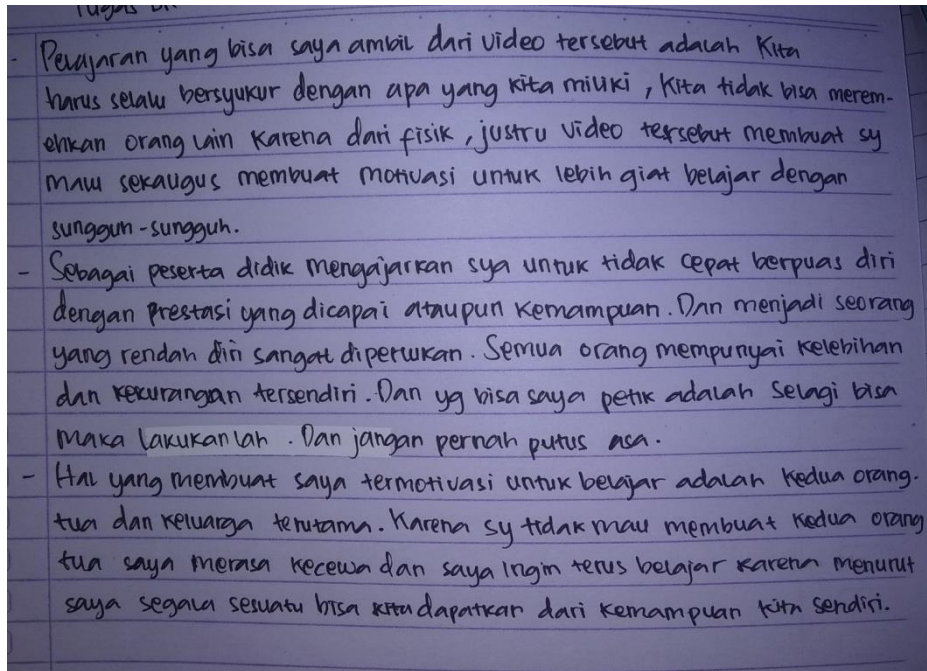 Tugas
- Pelajaran yang bisa saya ambil dari video tersebut adalah Kita
harus selalu bersyukur dengan apa yang kita miliki, Kita tidak bisa merem-
ehkan orang lain karena dari fisik, justru video tersebut membuat sy
malu sekaligus membuat motivasi untuk lebih giat belajar dengan
sungguh-sungguh.
- Sebagai peserta didik mengajarkan sya untuk tidak cepat berpuas diri
dengan prestasi yang dicapai ataupun kemampuan. Dan menjadi seorang
yang rendah diri sangat diperlukan. Semua orang mempunyai kelebihan
dan kekurangan tersendiri. Dan yg bisa saya petik adalah selagi bisa
maka lakukanlah. Dan jangan pernah putus asa.
- Hal yang membuat saya termotivasi untuk belajar adalah kedua orang-
tua dan keluarga terutama. Karena sy tidak mau membuat kedua orang
tua saya merasa kecewa dan saya ingin terus belajar karena menurut
saya segala sesuatu bisa kita dapatkan dari kemampuan kita sendiri.